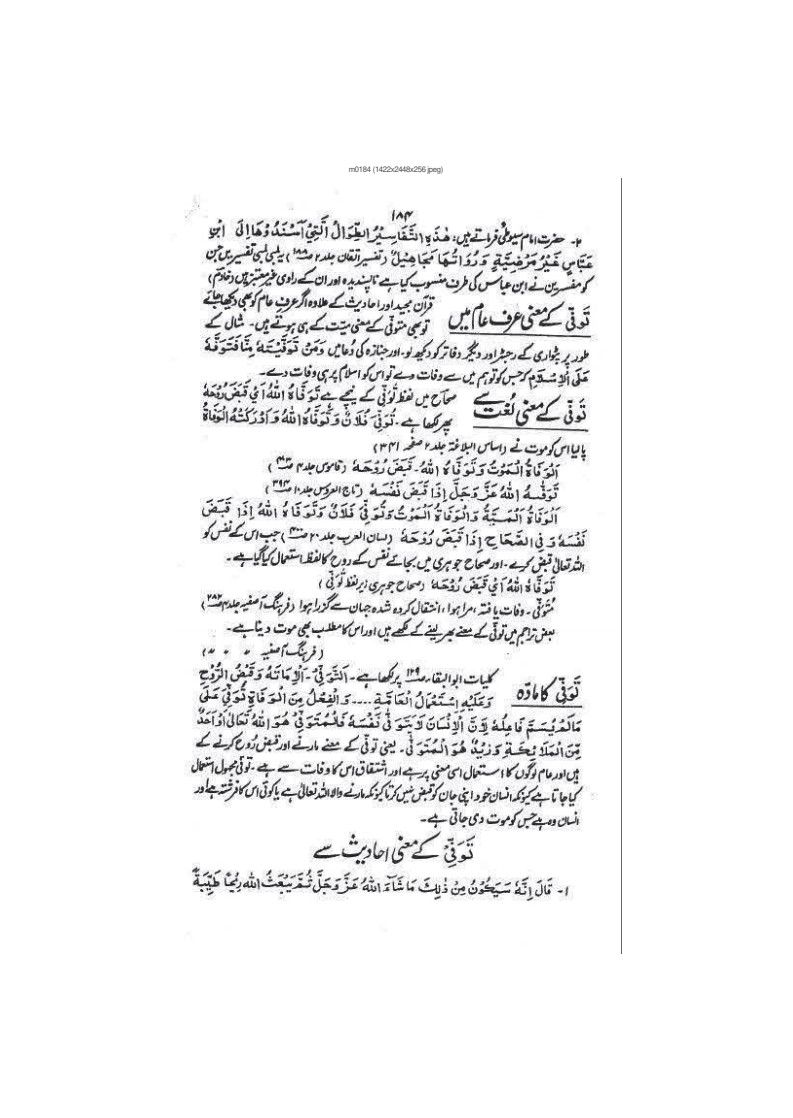 m0184 (1422x2448x256 jpeg)
۱۸۴
۲۔ حضرت امام سیوطیؒ فرماتے ہیں: هٰذِهِ التَّفَاسِيْرُ الطِّوَالُ الَّتِيْ اَسْنَدُوْهَا اِلَى ابْنِ
عَبَّاسٍ غَيْرُ مَرْضِيَّةٍ وَرُوَاتُهَا مَجَاهِيْلُ (تفسیر اتقان جلد ۲ ص۱۸۸) یہ لمبی لمبی تفسیریں جن
کو مفسرین نے ابن عباس کی طرف منسوب کیا ہے ناپسندیدہ اور ان کے راوی غیر معتبر ہیں (خادم)
تَوَفِّی کے معنی عرف عام میں
قرآن مجید اور احادیث کے علاوہ اگر عرفِ عام کو بھی دیکھا جائے
تو بھی متوفی کے معنی میّت کے ہی ہوتے ہیں۔ مثال کے
طور پر پٹواری کے رجسٹر اور دیگر دفاتر کو دیکھ لو۔ اور جنازہ کی دُعا میں وَمَنْ تَوَفَّيْتَهٗ مِنَّا فَتَوَفَّهٗ
عَلَى الْاِسْلَامِ کہ جس کو تو ہم میں سے وفات دے تو اس کو اسلام پر ہی وفات دے۔
تَوَفِّی کے معنی لُغت سے
صحاح میں لفظ تَوَفِّی کے نیچے ہے تَوَفَّاهُ اللهُ اَيْ قَبَضَ رُوْحَهٗ
پھر لکھا ہے۔ تُوُفِّيَ فُلَانٌ وَتَوَفَّاهُ اللهُ وَاَدْرَكَتْهُ الْوَفَاةُ
پالیا اس کو موت نے (اساس البلاغۃ جلد ۲ صفحہ ۳۴۱)
اَلْوَفَاةُ الْمَوْتُ وَتَوَفَّاهُ اللهُ۔ قَبَضَ رُوْحَهٗ (قاموس جلد ۴
تَوَفَّهُ اللهُ عَزَّ وَجَلَّ اِذَا قَبَضَ نَفْسَهٗ (تاج العروس جلد ۱۰ ص۳۹۴)
اَلْوَفَاةُ الْمَنِيَّةُ وَالْوَفَاةُ الْمَوْتُ وَتُوُفِّيَ فُلَانٌ وَتَوَفَّاهُ اللهُ اِذَا قَبَضَ
نَفْسَهٗ وَفِي الصَّحَاحِ اِذَا قَبَضَ رُوْحَهٗ (لسان العرب جلد ۲۰ جب اس کے نفس کو
اللہ تعالیٰ قبض کرے۔ اور صحاح جوہری میں بجائے نفس کے روح کا لفظ استعمال کیا گیا ہے۔
تَوَفَّاهُ اللهُ اَيْ قَبَضَ رُوْحَهٗ (صحاح جوہری زیر لفظ تَوَفِّی)
مُتَوَفِّی۔ وفات یافتہ، مرا ہوا، انتقال کردہ شدہ جہان سے گزرا ہوا (فرہنگ آصفیہ جلد ۴ ص۲۸۲)
بعض تراجم میں توفی کے معنے بھر لینے کے لکھے ہیں اور اس کا مطلب بھی موت دینا ہے۔
(فرہنگ آصفیہ 〃 〃 〃)
تَوَفِّی کا مادّہ
کلیات ابو البقاء ص۱۲۹ پر لکھا ہے۔ اَلتَّوَفِّيْ۔ اَلْاِمَاتَةُ وَقَبْضُ الرُّوْحِ
وَعَلَيْهِ اسْتِعْمَالُ الْعَامَّةِ .... وَالْفِعْلُ مِنَ الْوَفَاةِ تُوُفِّيَ عَلٰى
مَا لَمْ يُسَمَّ فَاعِلُهٗ لِاَنَّ الْاِنْسَانَ لَا يَتَوَفّٰى نَفْسَهٗ فَالْمُتَوَفِّيْ هُوَ اللهُ تَعَالٰى اَوْ اَحَدٌ
مِّنَ الْمَلَائِكَةِ وَزَيْدٌ هُوَ الْمُتَوَفّٰى۔ یعنی توفی کے معنے مارنے اور قبضِ رُوح کرنے کے
ہیں اور عام لوگوں کا استعمال اسی معنی پر ہے اور اشتقاق اس کا وفات سے ہے۔ توفی مجہول استعمال
کیا جاتا ہے کیونکہ انسان خود اپنی جان کو قبض نہیں کرتا کیونکہ مارنے والا اللہ تعالیٰ ہے یا کوئی اس کا فرشتہ ہے اور
انسان وہ ہے جس کو موت دی جاتی ہے۔
تَوَفِّیْ کے معنی احادیث سے
۱۔ قَالَ اِنَّهٗ سَيَكُوْنُ مِنْ ذٰلِكَ مَا شَاءَ اللهُ عَزَّ وَجَلَّ ثُمَّ يَبْعَثُ اللهُ رِيْحًا طَيِّبَةً